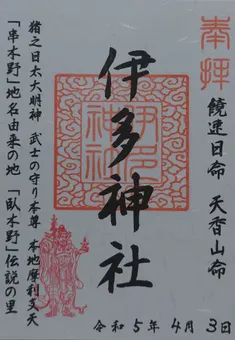 奉拝
饒速日命 天香山命
伊多神社
伊多神社
猪之日太大明神 武士の守り本尊 本地摩利支天
「串木野」地名由来の地 「臥木野」伝説の里
令和5年4月3日